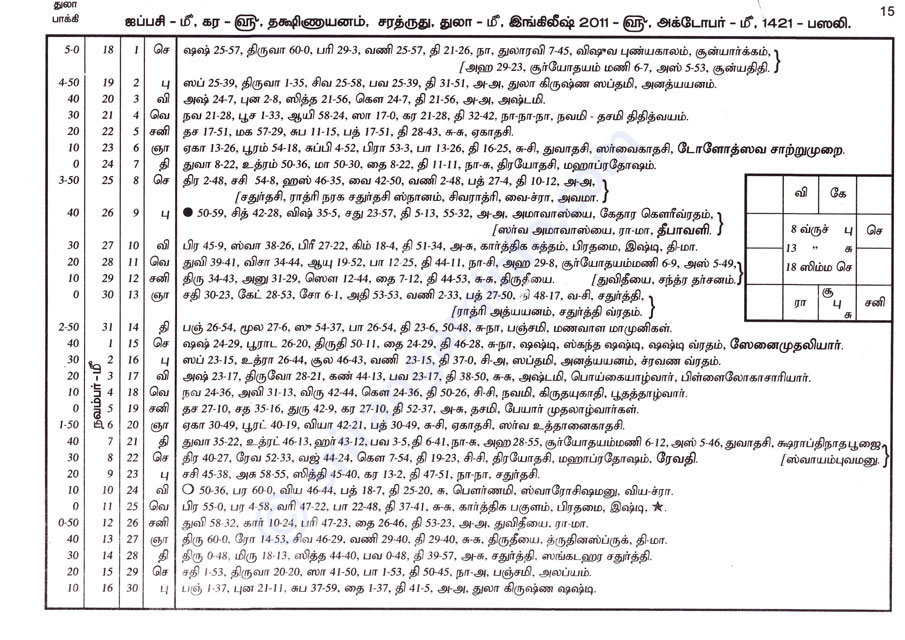 துலா
பாக்கி
ஐப்பசி - மீ, கர - ௵, தக்ஷிணாயனம், சரத்ருது, துலா - மீ, இங்கிலீஷ் 2011 - ௵, அக்டோபர் - மீ, 1421 - பஸலி.
15
5-0 18 1 செ ஷஷ் 25-57, திருவா 60-0, பரி 29-3, வணி 25-57, தி 21-26, நா, துலாரவி 7-45, விஷுவ புண்யகாலம், சூன்யார்க்கம்,
[அஹ 29-23, சூர்யோதயம் மணி 6-7, அஸ் 5-53, சூன்யதிதி.
4-50 19 2 பு ஸப் 25-39, திருவா 1-35, சிவ 25-58, பவ 25-39, தி 31-51, அ-அ, துலா கிருஷ்ண ஸப்தமி, அனத்யயனம்.
40 20 3 வி அஷ் 24-7, புன 2-8, ஸித்த 21-56, கௌ 24-7, தி 21-56, அ-அ, அஷ்டமி.
30 21 4 வெ நவ 21-28, பூச 1-33, ஆயி 58-24, ஸா 17-0, கர 21-28, தி 32-42, நா-நா-நா, நவமி - தசமி திதித்வயம்.
20 22 5 சனி தச 17-51, மக 57-29, சுப 11-15, பத் 17-51, தி 28-43, சு-சு, ஏகாதசி.
10 23 6 ஞா ஏகா 13-26, பூரம் 54-18, சுப்பி 4-52, பிரா 53-3, பா 13-26, தி 16-25, சு-சி, துவாதசி, ஸர்வைகாதசி, டோளோத்ஸவ சாற்றுமுறை.
0 24 7 தி துவா 8-22, உத்ரம் 50-36, மா 50-30, தை 8-22, தி 11-11, நா-சு, திரயோதசி, மஹாப்ரதோஷம்.
3-50 25 8 செ திர 2-48, சசி 54-8, ஹஸ் 46-35, வை 42-50, வணி 2-48, பத் 27-4, தி 10-12, அ-அ,
[சதுர்தசி, ராத்ரி நரக சதுர்தசி ஸ்நானம், சிவராத்ரி, வை-ச்ரா, அவமா.
40 26 9 பு ● 50-59, சித் 42-28, விஷ் 35-5, சது 23-57, தி 5-13, 55-32, அ-அ, அமாவாஸ்யை, கேதார கௌரீவ்ரதம்,
[ஸர்வ அமாவாஸ்யை, ரா-மா, தீபாவளி.
30 27 10 வி பிர 45-9, ஸ்வா 38-26, பிரீ 27-22, கிம் 18-4, தி 51-34, அ-சு, கார்த்திக சுத்தம், பிரதமை, இஷ்டி, தி-மா.
20 28 11 வெ துவி 39-41, விசா 34-44, ஆயு 19-52, பா 12-25, தி 44-11, நா-சி, அஹ 29-8, சூர்யோதயம்மணி 6-9, அஸ் 5-49,
10 29 12 சனி திரு 34-43, அனு 31-29, ஸௌ 12-44, தை 7-12, தி 44-53, சு-சு, திருதீயை. [துவிதீயை, சந்த்ர தர்சனம்.
0 30 13 ஞா சதி 30-23, கேட் 28-53, சோ 6-1, அதி 53-53, வணி 2-33, பத் 27-50, தி 48-17, வ-சி, சதுர்த்தி,
[ராத்ரி அத்யயனம், சதுர்த்தி வ்ரதம்.
2-50 31 14 தி பஞ் 26-54, மூல 27-6, ஸு 54-37, பா 26-54, தி 23-6, 50-48, சு-நா, பஞ்சமி, மணவாள மாமுனிகள்.
நவம்பர் -மீ
40 1 15 செ ஷஷ் 24-29, பூராட 26-20, திருதி 50-11, தை 24-29, தி 46-28, சு-நா, ஷஷ்டி, ஸ்கந்த ஷஷ்டி, ஷஷ்டி வ்ரதம், ஸேனைமுதலியார்.
30 2 16 பு ஸப் 23-15, உத்ரா 26-44, சூல 46-43, வணி 23-15, தி 37-0, சி-அ, ஸப்தமி, அனத்யயனம், ச்ரவண வ்ரதம்.
20 3 17 வி அஷ் 23-17, திருவோ 28-21, கண் 44-13, பவ 23-17, தி 38-50, சு-சு, அஷ்டமி, பொய்கையாழ்வார், பிள்ளைலோகாசாரியார்.
10 4 18 வெ நவ 24-36, அவி 31-13, விரு 42-44, கௌ 24-36, தி 50-26, சி-சி, நவமி, கிருதயுகாதி, பூதத்தாழ்வார்.
0 5 19 சனி தச 27-10, சத 35-16, துரு 42-9, கர 27-10, தி 52-37, அ-சு, தசமி, பேயார் முதலாழ்வார்கள்.
1-50 6 20 ஞா ஏகா 30-49, பூரட் 40-19, வியா 42-21, பத் 30-49, சு-சி, ஏகாதசி, ஸர்வ உத்தானைகாதசி.
40 7 21 தி துவா 35-22, உத்ரட் 46-13, ஹர் 43-12, பவ 3-5, தி 6-41, நா-சு, அஹ 28-55, சூர்யோதயம்மணி 6-12, அஸ் 5-46, துவாதசி, க்ஷராப்திநாதபூஜை
30 8 22 செ திர 40-27, ரேவ 52-33, வஜ் 44-24, கௌ 7-54, தி 19-23, சி-சி, திரயோதசி, மஹாப்ரதோஷம், ரேவதி. [ஸ்வாயம்புவமனு.
20 9 23 பு சசி 45-38, அசு 58-55, ஸித்தி 45-40, கர 13-2, தி 47-51, நா-நா, சதுர்தசி.
10 10 24 வி ○ 50-36, பர 60-0, விய 46-44, பத் 18-7, தி 25-20, சு, பௌர்ணமி, ஸ்வாரோசிஷமனு, விய-ச்ரா.
0 11 25 வெ பிர 55-0, பர 4-58, வரி 47-22, பா 22-48, தி 37-41, சு-சு, கார்த்திக பகுளம், பிரதமை, இஷ்டி, ★.
0-50 12 26 சனி துவி 58-32, கார் 10-24, பரி 47-23, தை 26-46, தி 53-23, அ-அ, துவிதீயை, ரா-மா.
40 13 27 ஞா திரு 60-0, ரோ 14-53, சிவ 46-29, வணி 29-40, தி 29-40, சு-சு, திருதீயை, த்ருதினஸ்ப்ருக், தி-மா.
30 14 28 தி திரு 0-48, மிரு 18-13, ஸித்த 44-40, பவ 0-48, தி 39-57, அ-சு, சதுர்த்தி, ஸங்கடஹர சதுர்த்தி.
20 15 29 செ சதி 1-53, திருவா 20-20, ஸா 41-50, பா 1-53, தி 50-45, நா-அ, பஞ்சமி, அலப்யம்.
10 16 30 பு பஞ் 1-37, புன 21-11, சுப 37-59, தை 1-37, தி 41-5, அ-அ, துலா கிருஷ்ண ஷஷ்டி.
வி கே
8 வ்ருச் பு செ
13 " சு
18 ஸிம்ம செ
ரா சூ பு சு சனி